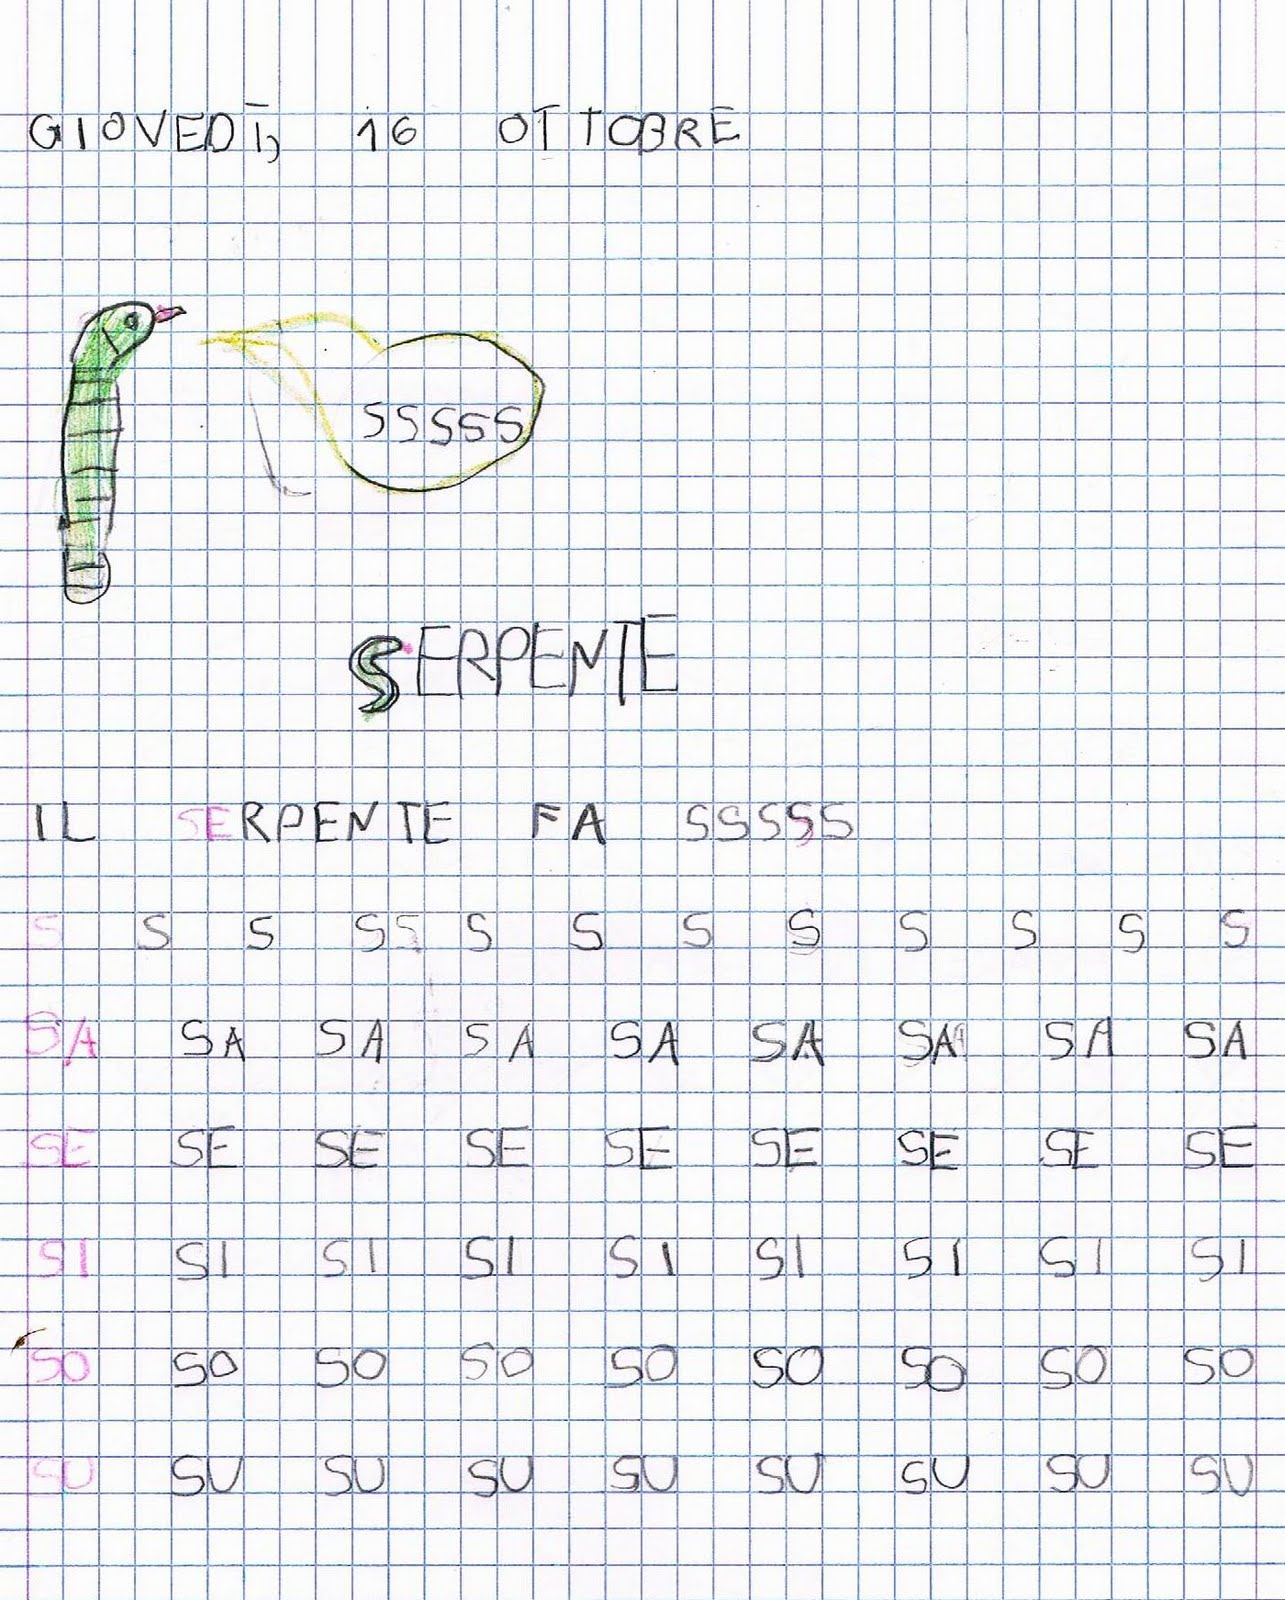 GIOVEDÌ, 16 OTTOBRE
SSSSS
SERPENTE
IL SERPENTE FA SSSSS
S S S S S S S S S S S S S
SA SA SA SA SA SA SA SA SA
SE SE SE SE SE SE SE SE SE
SI SI SI SI SI SI SI SI SI
SO SO SO SO SO SO SO SO SO
SU SU SU SU SU SU SU SU SU